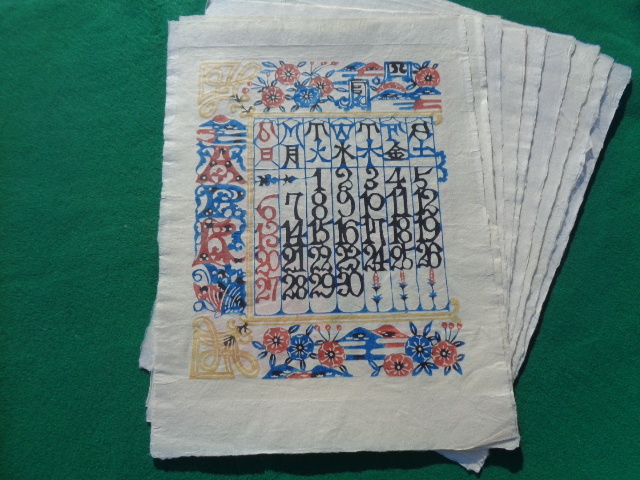 四月
A
P
R
S M T W T F S
日 月 火 水 木 金 土
1 2 3 4 5
6 7 8 9 10 11 12
13 14 15 16 17 18 19
20 21 22 23 24 25 26
27 28 29 30